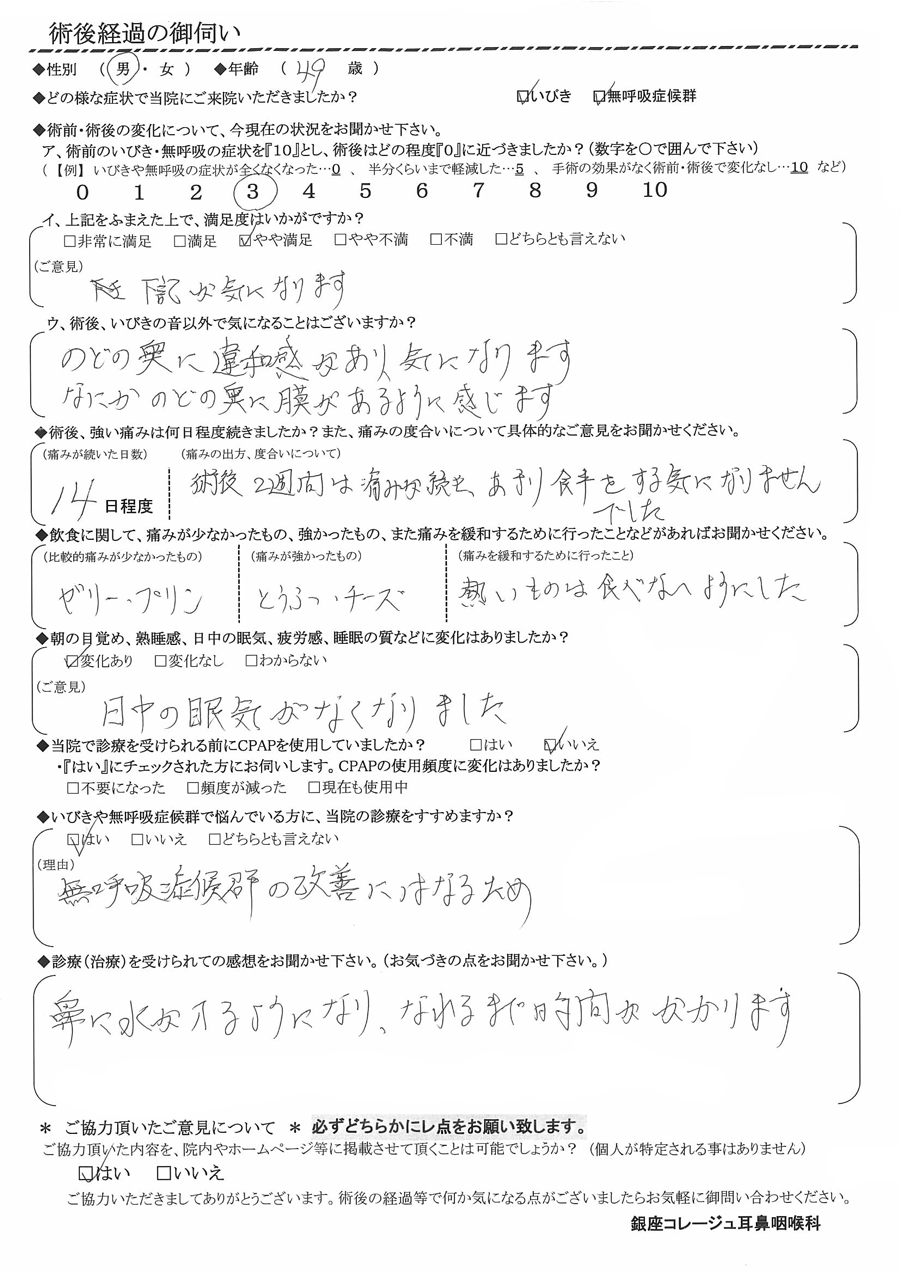 術後経過の御伺い
◆性別 （ 男 ・ 女 ） ◆年齢 （ 49 歳 ）
◆どの様な症状で当院にご来院いただきましたか？ ☑いびき ☑無呼吸症候群
◆術前・術後の変化について、今現在の状況をお聞かせ下さい。
ア、術前のいびき・無呼吸の症状を『10』とし、術後はどの程度『0』に近づきましたか？（数字を○で囲んで下さい）
（【例】 いびきや無呼吸の症状が全くなくなった…0 、 半分くらいまで軽減した…5 、 手術の効果がなく術前・術後で変化なし…10 など）
0 1 2 3 4 5 6 7 8 9 10
イ、上記をふまえた上で、満足度はいかがですか？
□非常に満足 □満足 ☑やや満足 □やや不満 □不満 □どちらとも言えない
（ご意見）
下記が気になります
ウ、術後、いびきの音以外で気になることはございますか？
のどの奥に違和感があり、気になります
なにかのどの奥に膜があるように感じます
◆術後、強い痛みは何日程度続きましたか？また、痛みの度合いについて具体的なご意見をお聞かせください。
（痛みが続いた日数） （痛みの出方、度合いについて）
14日程度 術後2週間は痛みが続き、あまり食事をする気になりません
でした
◆飲食に関して、痛みが少なかったもの、強かったもの、また痛みを緩和するために行ったことなどがあればお聞かせください。
（比較的痛みが少なかったもの） （痛みが強かったもの） （痛みを緩和するために行ったこと）
ゼリー、プリン とうふ、チーズ 熱いものは食べないようにした
◆朝の目覚め、熟睡感、日中の眠気、疲労感、睡眠の質などに変化はありましたか？
☑変化あり □変化なし □わからない
（ご意見）
日中の眠気がなくなりました
◆当院で診療を受けられる前にCPAPを使用していましたか？ □はい ☑いいえ
・『はい』にチェックされた方にお伺いします。CPAPの使用頻度に変化はありましたか？
□不要になった □頻度が減った □現在も使用中
◆いびきや無呼吸症候群で悩んでいる方に、当院の診療をすすめますか？
☑はい □いいえ □どちらとも言えない
（理由）
無呼吸症候群の改善にはなるため
◆診療（治療）を受けられての感想をお聞かせ下さい。（お気づきの点をお聞かせ下さい。）
鼻に水が入るようになり、なれるまで時間がかかります
＊ ご協力頂いたご意見について ＊ 必ずどちらかにレ点をお願い致します。
ご協力頂いた内容を、院内やホームページ等に掲載させて頂くことは可能でしょうか？ （個人が特定される事はありません）
☑はい □いいえ
ご協力いただきましてありがとうございます。術後の経過等で何か気になる点がございましたらお気軽に御問い合わせください。
銀座コレージュ耳鼻咽喉科